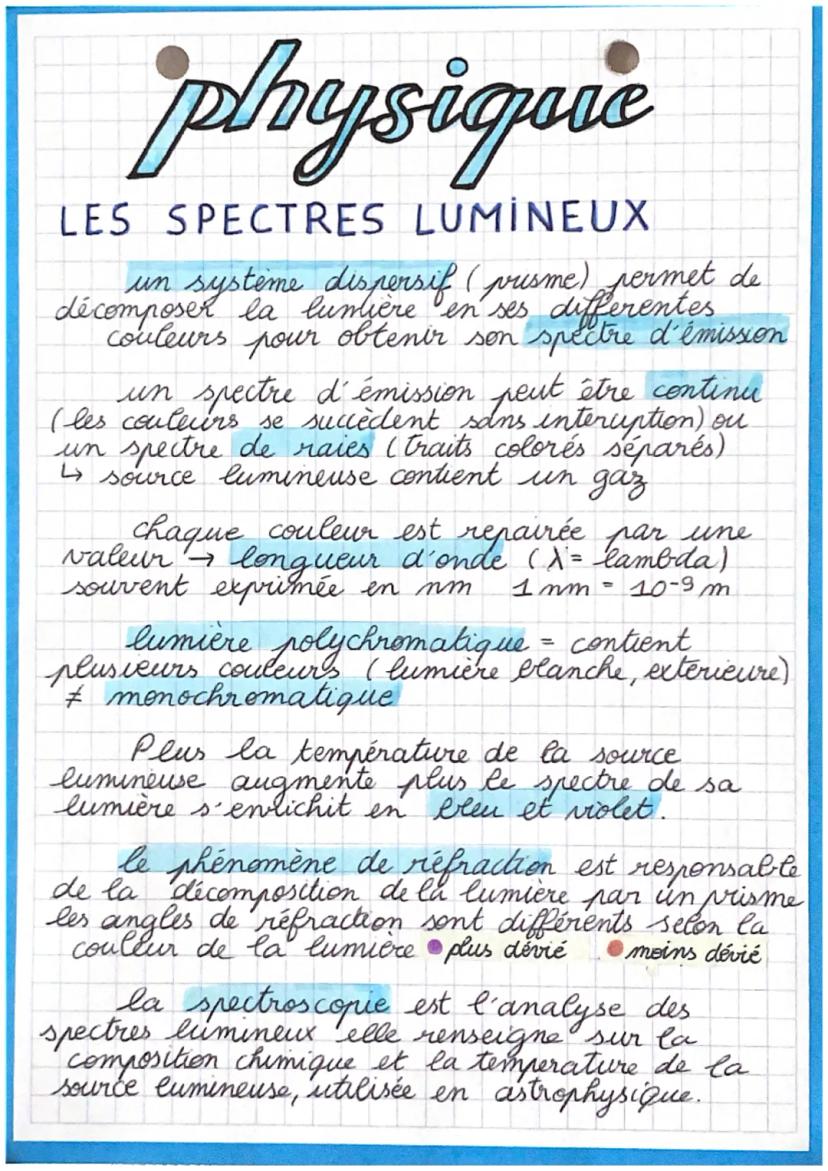 physique
LES SPECTRES LUMINEUX
un système dispersif (prisme) permet de
décomposer la lumière en ses différentes
couleurs pour obtenir son spectre d'émission
un spectre d'émission peut être continu
(les couleurs se succèdent sans interuption) ou
un spectre de raies (traits colorés séparés)
↳ source lumineuse contient un gaz
chaque couleur est repairée par une
valeur → longueur d'onde (λ = lambda)
souvent exprimée en nm 1 nm = 10⁻⁹ m
lumière polychromatique = contient
plusieurs couleurs (lumière blanche, extérieure)
≠ monochromatique
Plus la température de la source
lumineuse augmente plus le spectre de sa
lumière s'enrichit en bleu et violet.
le phénomène de réfraction est responsable
de la décomposition de la lumière par un prisme
les angles de réfraction sont différents selon la
couleur de la lumière • plus dévié • moins dévié
la spectroscopie est l'analyse des
spectres lumineux elle renseigne sur la
composition chimique et la temperature de la
source lumineuse, utilisée en astrophysique.